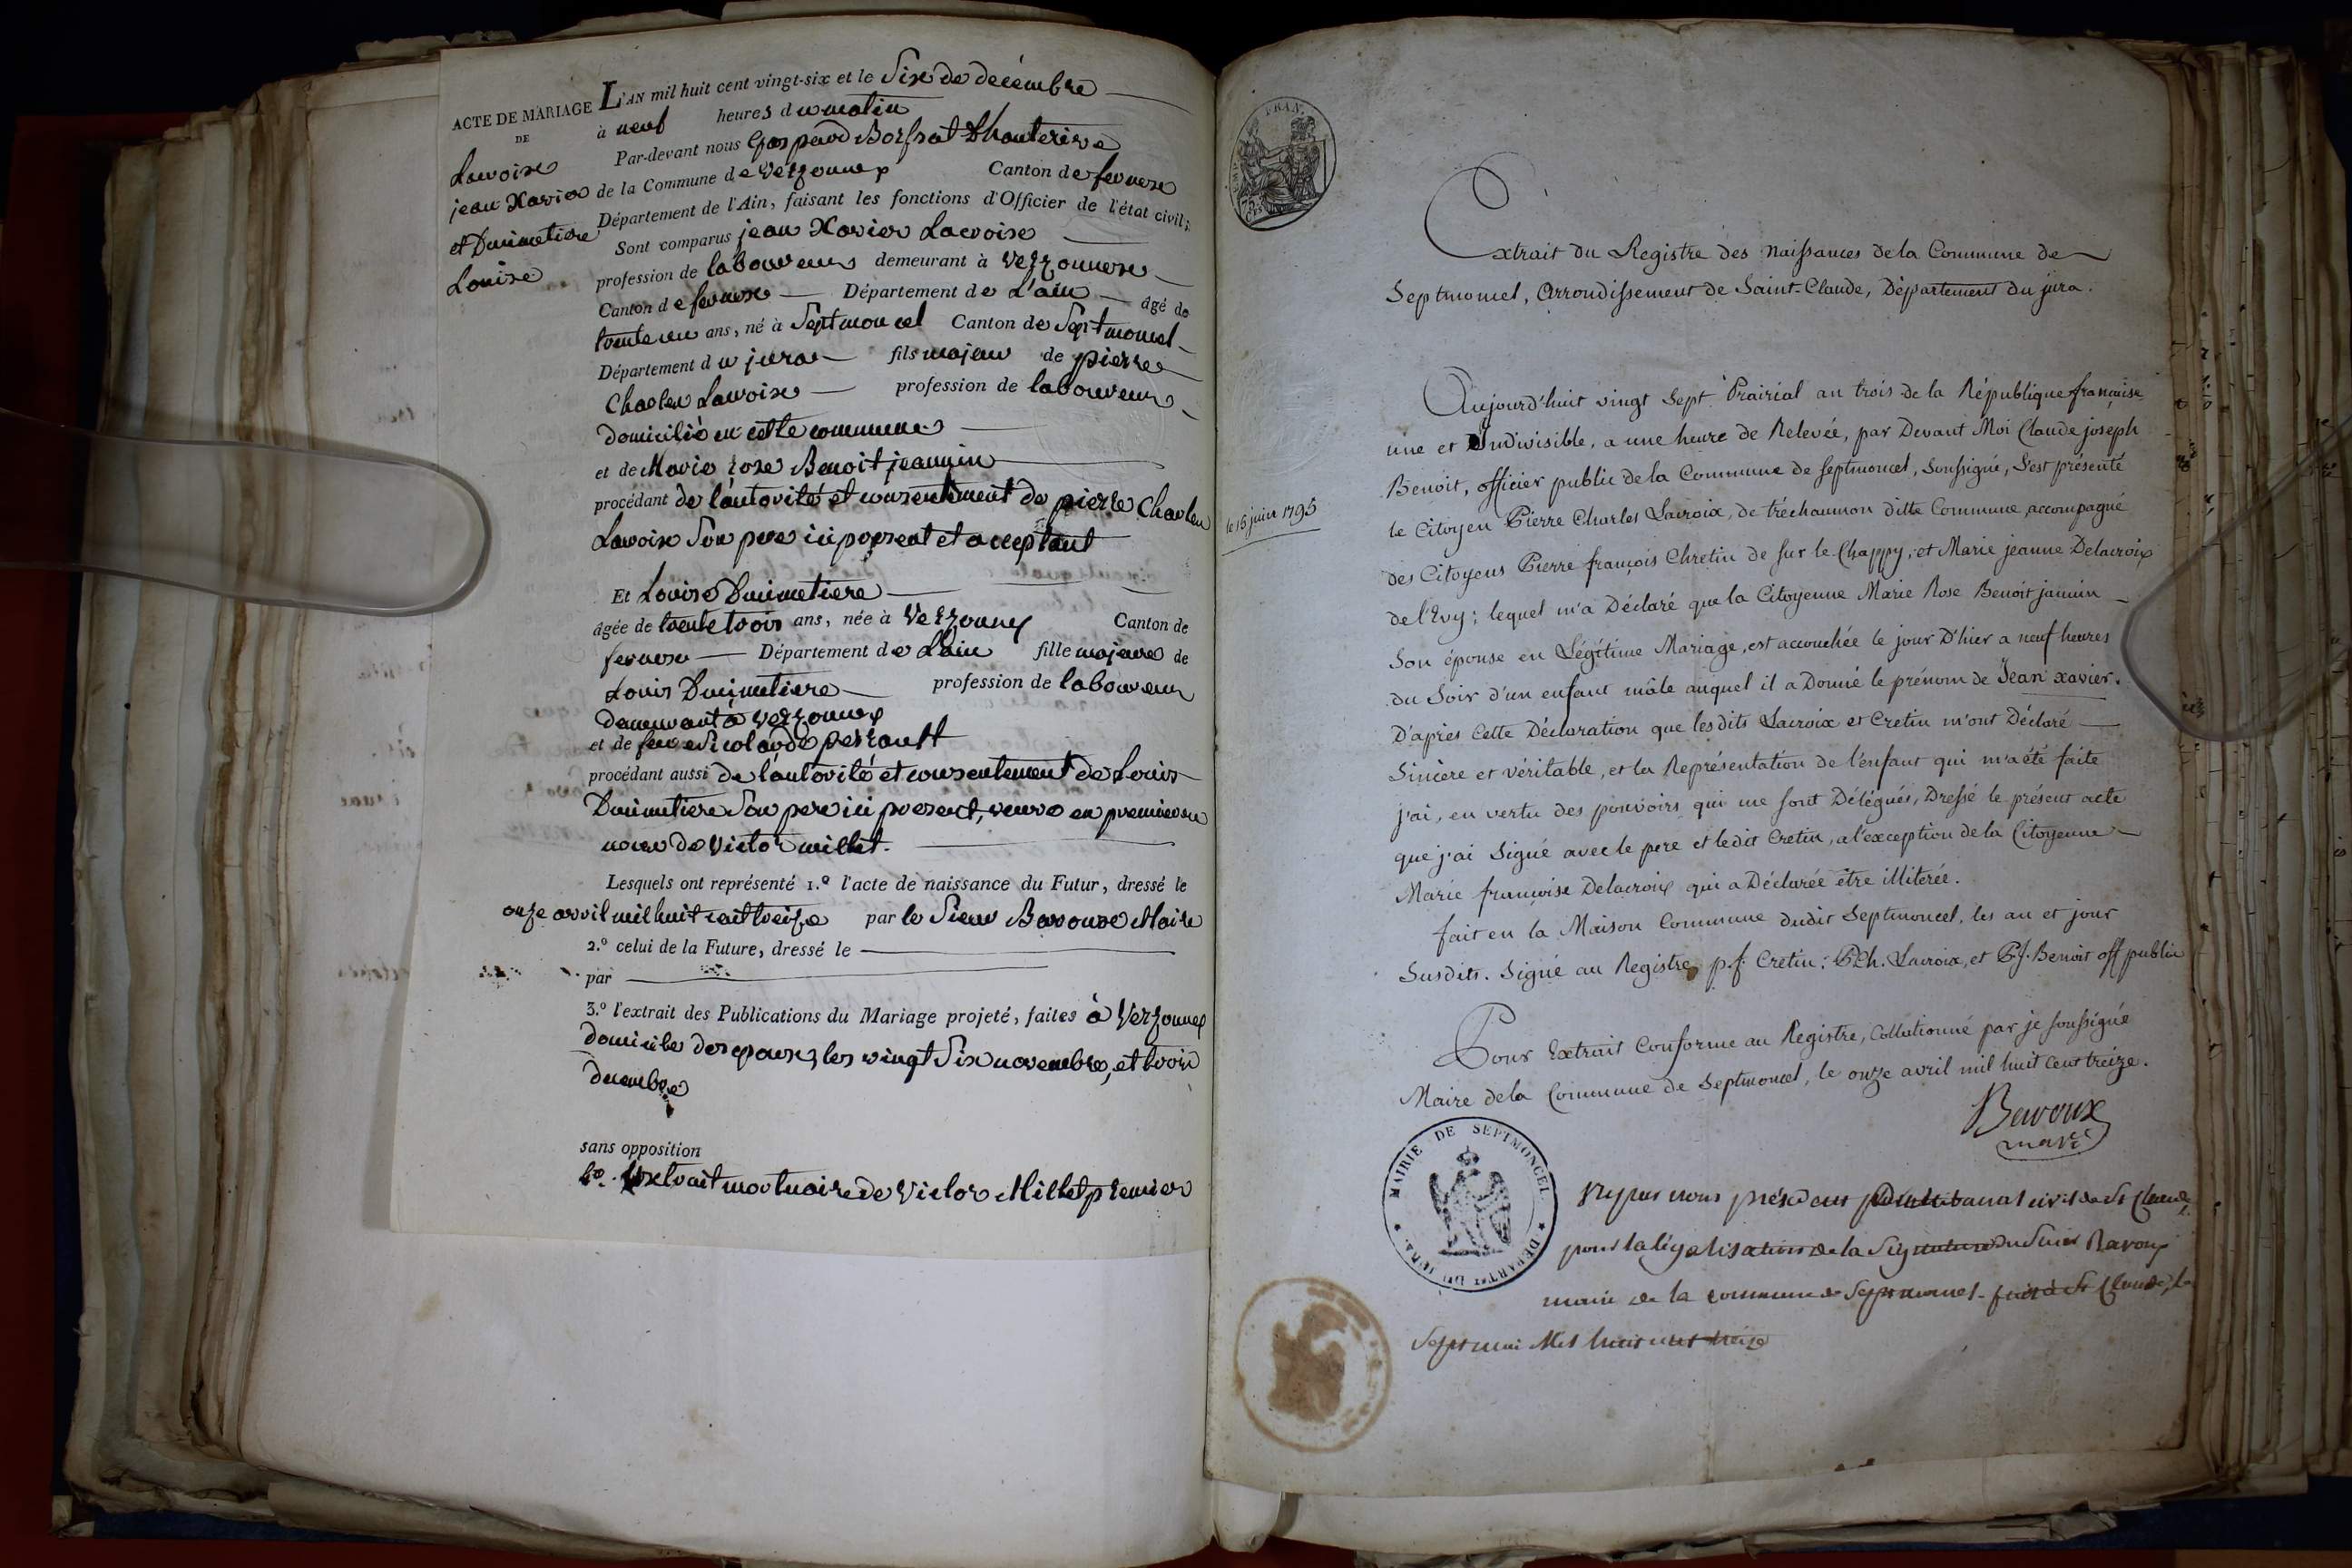 ACTE DE MARIAGE
DE
Lacroix
jean Xavier
et Dumetiere
Louise
L'AN mil huit cent vingt-six et le Six de decembre
à neuf heures du matin
Par-devant nous Gaspard Boissat Dhauterive
de la Commune de Versonnex Canton de fernex
Département de l'Ain, faisant les fonctions d'Officier de l'état civil;
Sont comparus jean Xavier Lacroix
profession de laboureur demeurant à Versonnex
Canton de fernex Département de L'ain âgé de
trente un ans, né à Septmoncel Canton de Septmoncel
Département du jura fils majeur de pierre
Charles Lacroix profession de laboureur
domicilié en cette commune
et de Marie rose Benoit jeannin
procédant de l'autorité et consentement de pierre Charles
Lacroix Son pere ici present et acceptant
Et Louise
âgée de trente trois ans, née à Versonnex Canton de
fernex Département de L'ain fille majeure de
Louis profession de laboureur
demeurant à Versonnex
et de feue Nicolarde perrault
procédant aussi de l'autorité et consentement de Louis
Son pere ici present, veuve en premiere
noces de Victor millet.
Lesquels ont représenté 1.º l'acte de naissance du Futur, dressé le
onze avril mil huit cent treize par le Sieur Maire
2.º celui de la Future, dressé le
par
3.º l'extrait des Publications du Mariage projeté, faites à Versonnex
domicile des epoux, les vingt Six novembre, et trois
decembre
sans opposition
4º. Extrait mortuaire de Victor Millet premier
FRAN.
75 CES
le 15 juin 1795
Extrait du Registre des Naissances de la Commune de
Septmoncel, Arrondissement de Saint-Claude, Département du jura.
Aujourd'huit vingt Sept Prairial an trois de la République française
une et Indivisible, a une heure de Relevée, par Devant Moi Claude joseph
Benoit, officier public de la Commune de Septmoncel, Soussigné, S'est présenté
le Citoyen Pierre Charles Lacroix, de tréchaumon ditte Commune, accompagné
des Citoyens Pierre françois Chretin de sur le Chappy, et Marie jeanne Delacroix
de l'Evy; lequel m'a Déclaré que la Citoyenne Marie Rose Benoit jannin
Son épouse en Légitime Mariage, est accouchée le jour D'hier a neuf heures
du Soir d'un enfant mâle auquel il a Donné le prénom de Jean xavier.
D'après Cette Déclaration que lesdits Lacroix et Cretin m'ont Déclaré
Sincere et véritable, et la Représentation de l'enfant qui m'a été faite
j'ai, en vertu des pouvoirs qui me sont Délégués, Dressé le présent acte
que j'ai Signé avec le pere et ledit Cretin, a l'exception de la Citoyenne
Marie françoise Delacroix qui a Déclarée être illiterée.
fait en la Maison Commune dudit Septmoncel, les an et jour
Susdits. Signé au Registre, p.f. Cretin; P.Ch. Lacroix, et P.J. Benoit off public
Pour Extrait Conforme au Registre, Collationné par je soussigné
Maire de la Commune de Septmoncel, le onze avril mil huit cent treize.
maire
MAIRIE DE SEPTMONCEL ★ DÉPART.T DU JURA. ★
Vu par nous président du tribunal civil de St Claude,
pour la légalisation de la Signature du Sieur
maire de la commune de Septmoncel fait à St Claude, le
Sept mai Mil huit cent treize